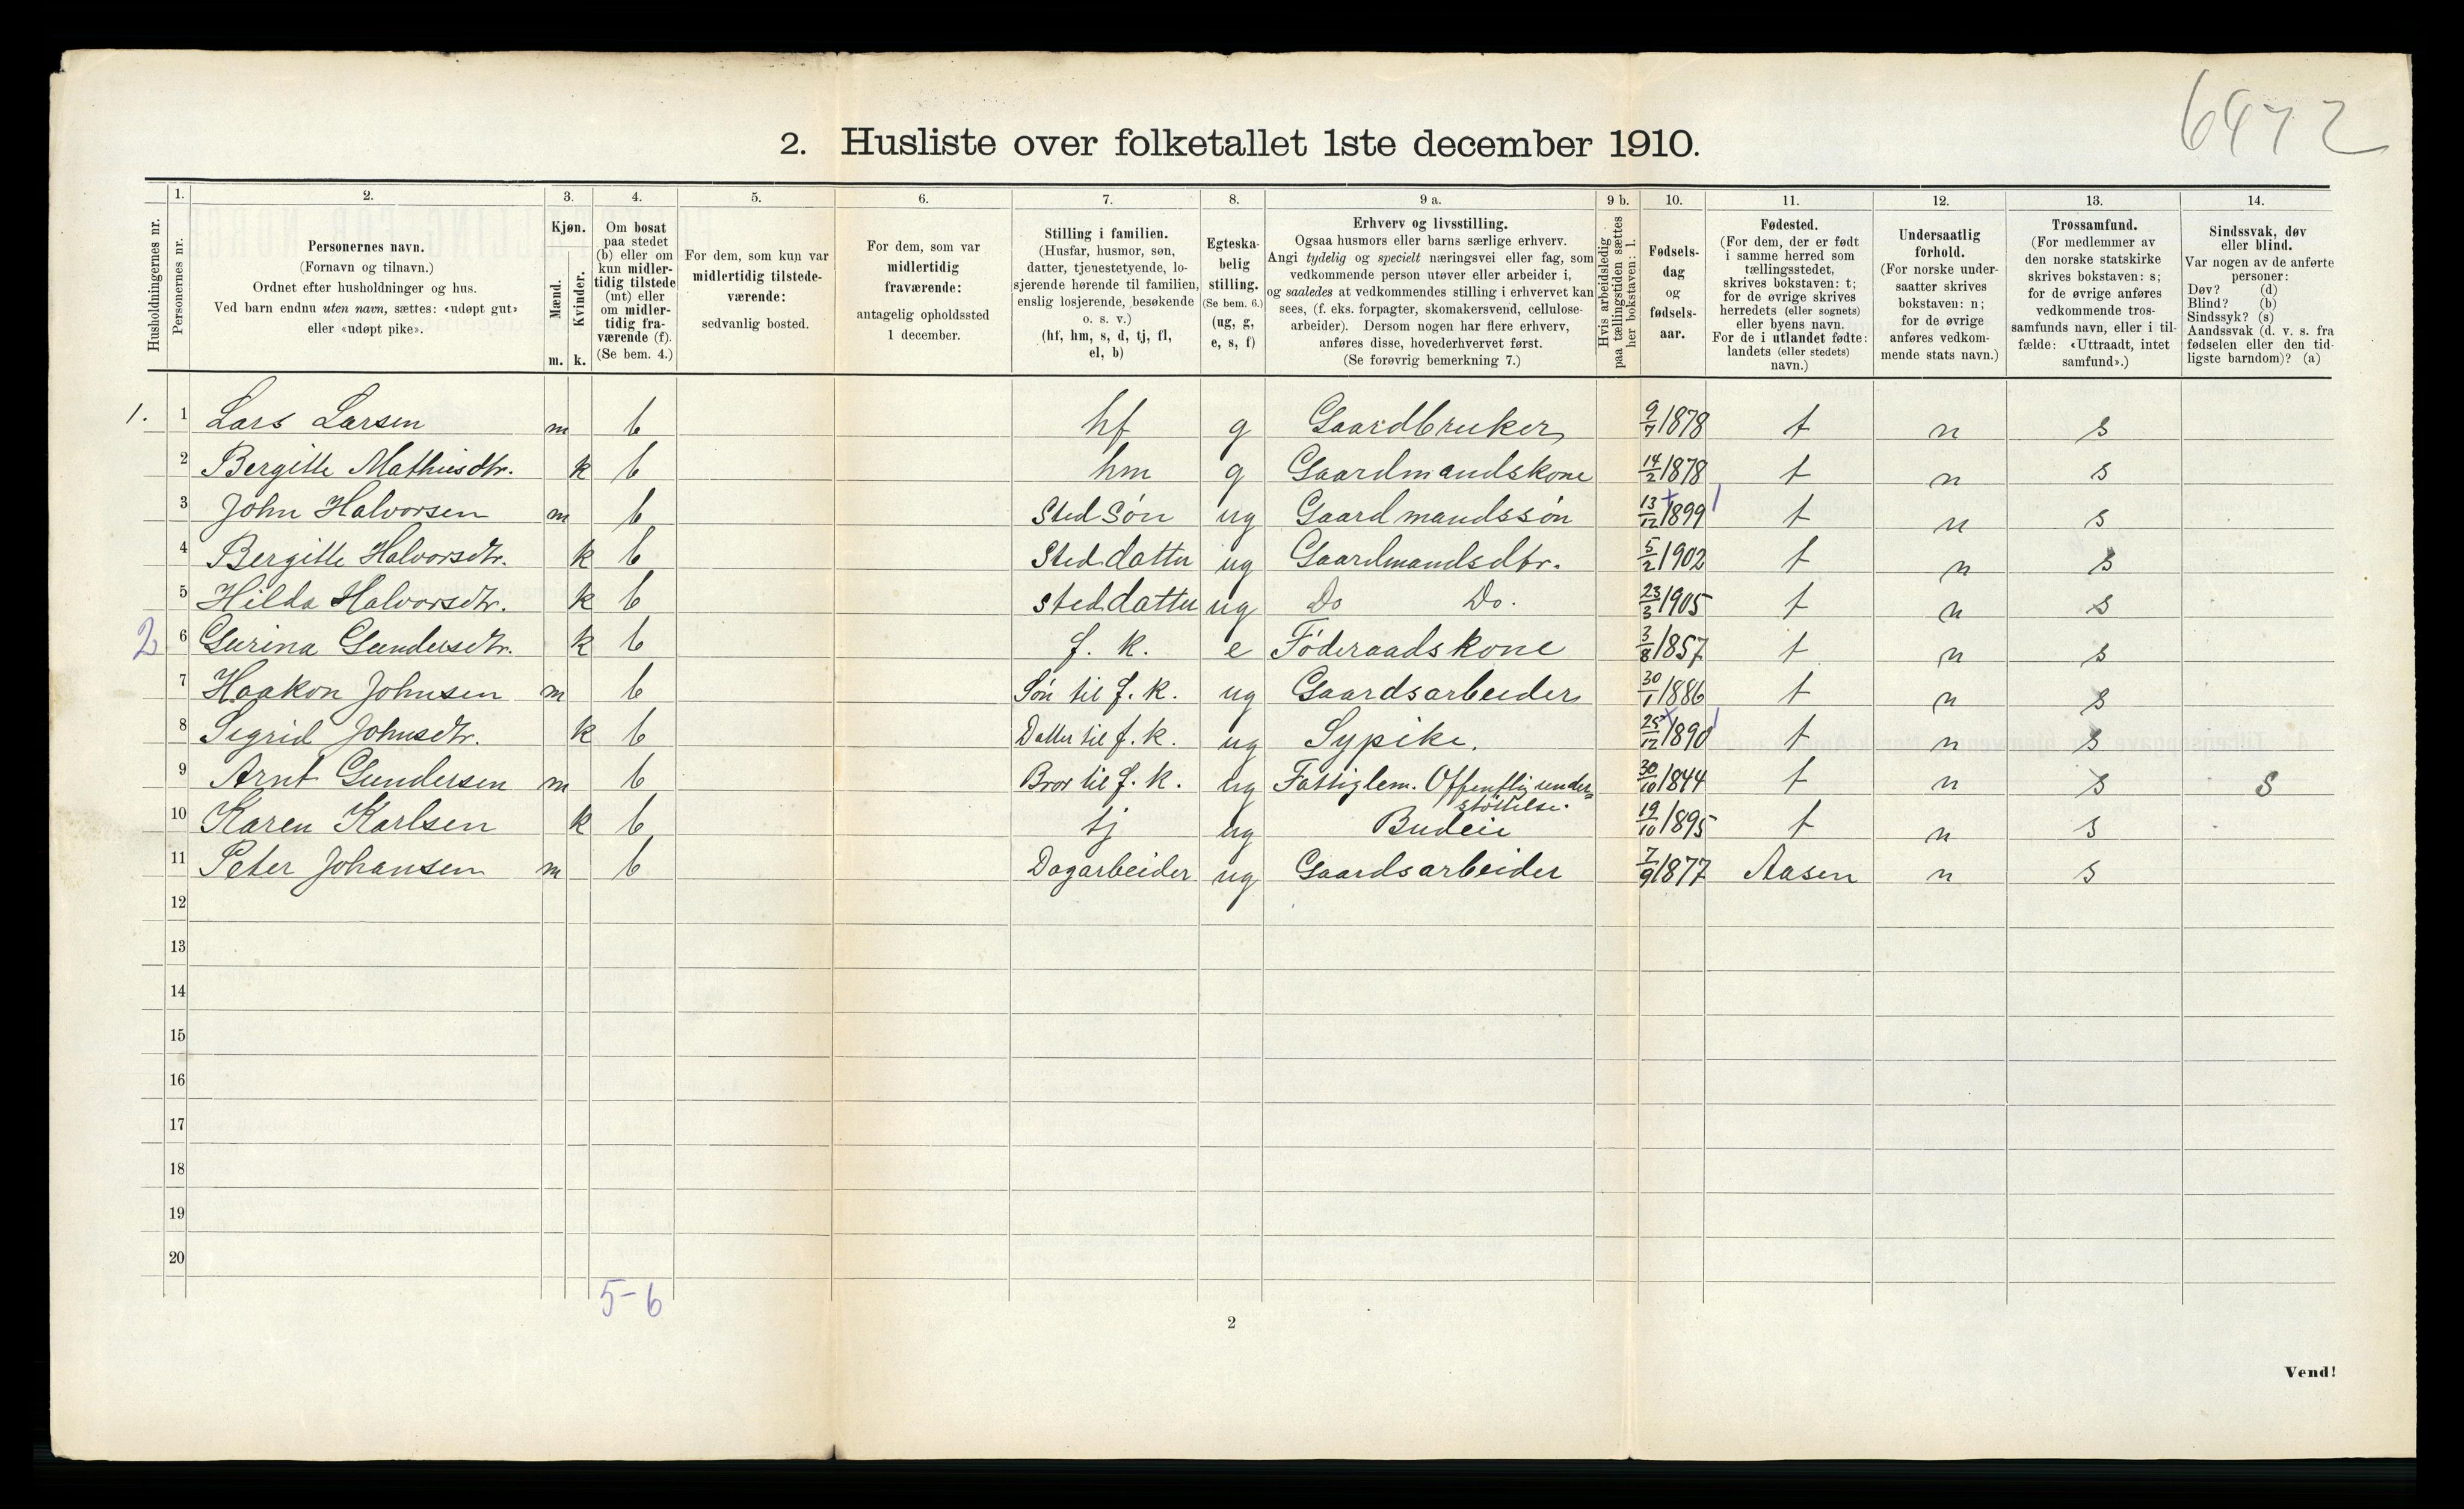 6472
2. Husliste over folketallet 1ste december 1910.
Husholdningernes nr.
1.
Personernes nr.
2.
Personernes navn.
(Fornavn og tilnavn.)
Ordnet efter husholdninger og hus.
Ved barn endnu uten navn, sættes: «udøpt gut»
eller «udøpt pike».
3.
Kjøn.
Mænd.
Kvinder.
m. k.
4.
Om bosat
paa stedet
(b) eller om
kun midler-
tidig tilstede
(mt) eller
om midler-
tidig fra-
værende (f).
(Se bem. 4.)
5.
For dem, som kun var
midlertidig tilstede-
værende:
sedvanlig bosted.
6.
For dem, som var
midlertidig
fraværende:
antagelig opholdssted
1 december.
7.
Stilling i familien.
(Husfar, husmor, søn,
datter, tjenestetyende, lo-
sjerende hørende til familien,
enslig losjerende, besøkende
o. s. v.)
(hf, hm, s, d, tj, fl,
el, b)
8.
Egteska-
belig
stilling.
(Se bem. 6.)
(ug, g,
e, s, f)
9 a.
Erhverv og livsstilling.
Ogsaa husmors eller barns særlige erhverv.
Angi tydelig og specielt næringsvei eller fag, som
vedkommende person utøver eller arbeider i,
og saaledes at vedkommendes stilling i erhvervet kan
sees, (f. eks. forpagter, skomakersvend, cellulose-
arbeider). Dersom nogen har flere erhverv,
anføres disse, hovederhvervet først.
(Se forøvrig bemerkning 7.)
9 b.
Hvis arbeidsledig
paa tællingstiden sættes
her bokstaven: l.
10.
Fødsels-
dag
og
fødsels-
aar.
11.
Fødested.
(For dem, der er født
i samme herred som
tællingsstedet,
skrives bokstaven: t;
for de øvrige skrives
herredets (eller sognets)
eller byens navn.
For de i utlandet fødte:
landets (eller stedets)
navn.)
12.
Undersaatlig
forhold.
(For norske under-
saatter skrives
bokstaven: n;
for de øvrige
anføres vedkom-
mende stats navn.)
13.
Trossamfund.
(For medlemmer av
den norske statskirke
skrives bokstaven: s;
for de øvrige anføres
vedkommende tros-
samfunds navn, eller i til-
fælde: «Uttraadt, intet
samfund».)
14.
Sindssvak, døv
eller blind.
Var nogen av de anførte
personer:
Døv? (d)
Blind? (b)
Sindssyk? (s)
Aandssvak (d. v. s. fra
fødselen eller den tid-
ligste barndom)? (a)
1. 1 Lars Larsen m b hf g Gaardbruker 9/7 1878 t n s
2 Bergitte Mathiesdtr. k b hm g Gaardmandskone 14/2 1878 t n s
3 John Halvorsen m b Sted søn ug Gaardmandssøn 13/12 1899 t n s
4 Bergitte Halvorsdtr. k b Sted datter ug Gaardmandsdtr. 5/2 1902 t n s
5 Hilda Halvorsdtr. k b sted datter ug Do Do. 23/3 1905 t n s
2 6 Gurina Gundersdtr. k b f. k. e Føderaadskone 3/8 1857 t n s
7 Haakon Johnsen m b Søn til f. k. ug Gaardsarbeider 30/1 1886 t n s
8 Sigrid Johnsdtr. k b Datter til f. k. ug Sypike. 25/12 1890 t n s
9 Arnt Gundersen m b Bror til f. k. ug Fattiglem. Offentlig under- 30/10 1844 t n s s
støttelse.
10 Karen Karlsen k b tj ug Budeie 19/10 1895 t n s
11 Peter Johansen m b Dagarbeider ug Gaardsarbeider 7/9 1877 Aasen n s
12
13
14
15
16
17
18
19
20
5-6
2
Vend!